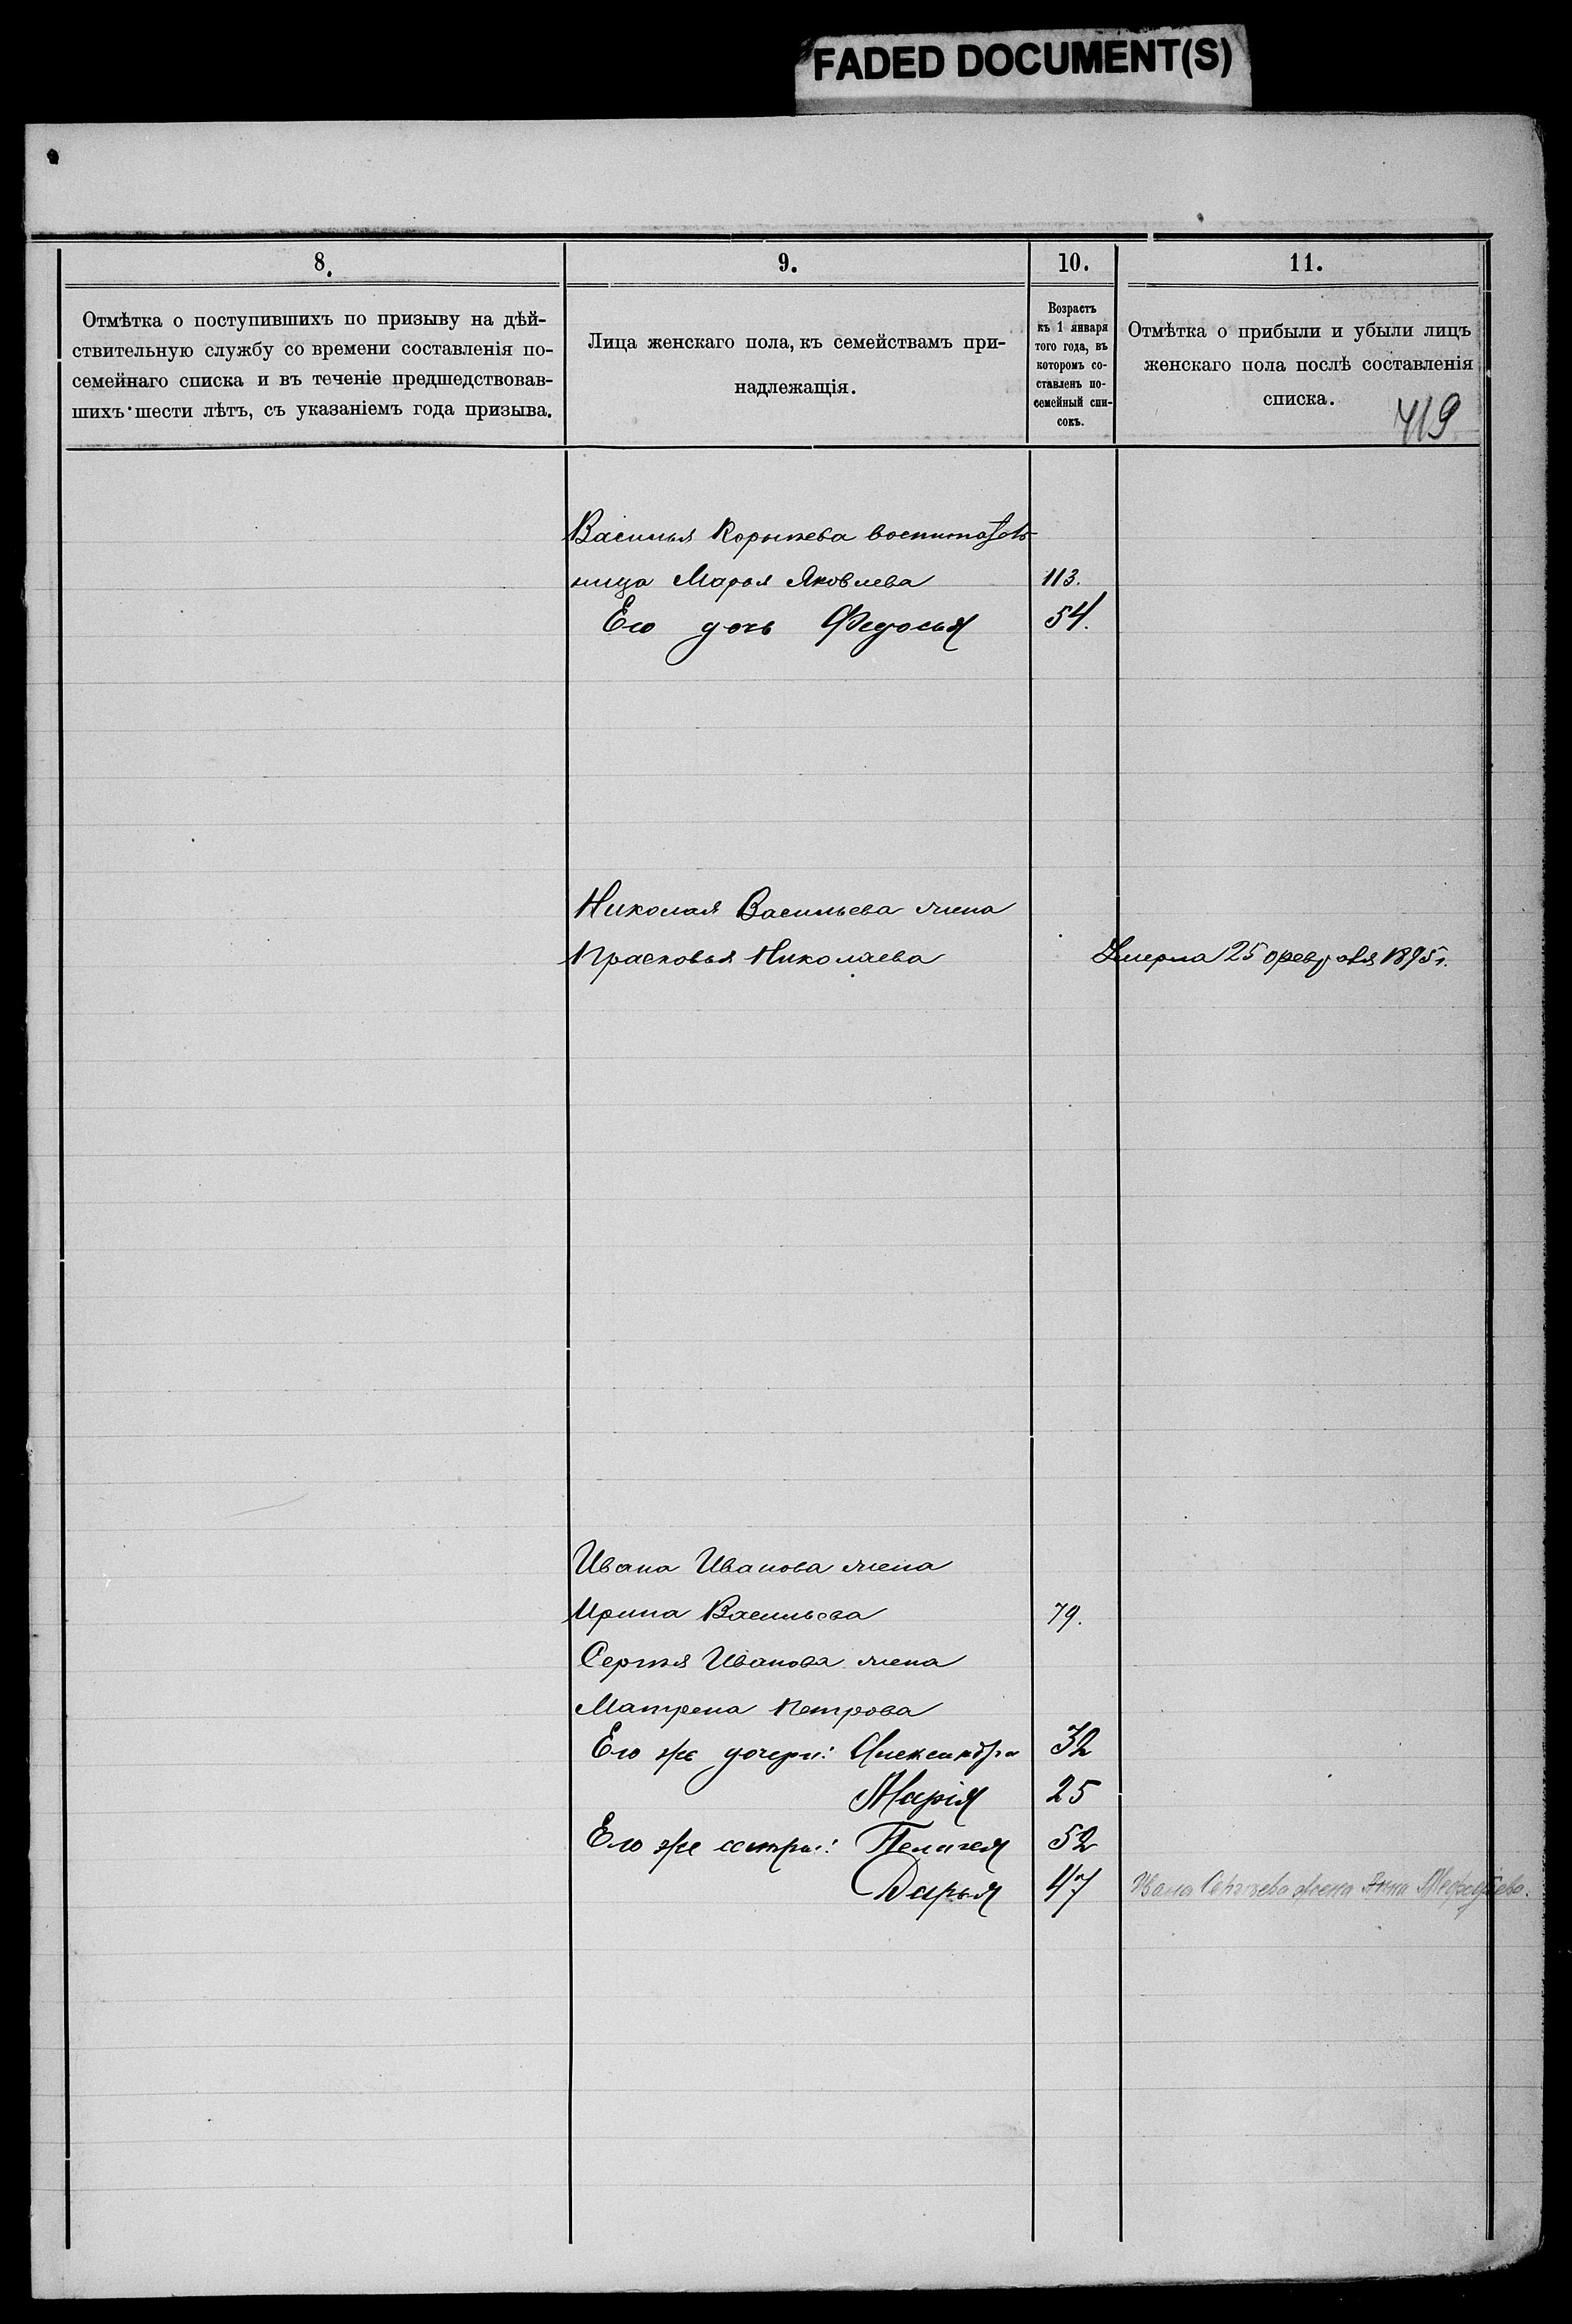 FADED DOCUMENT(S)
8.
Отмѣтка о поступившихъ по призыву на дѣй-
ствительную службу со времени составленія по-
семейнаго списка и въ теченіе предшедствовав-
шихъ шести лѣтъ, съ указаніемъ года призыва.
9.
Лица женскаго пола, къ семействамъ при-
надлежащія.
10.
Возрастъ
къ 1 января
того года, въ
которомъ со-
ставленъ по-
семейный спи-
сокъ.
11.
Отмѣтка о прибыли и убыли лицъ
женскаго пола послѣ составленія
списка.
419
Василья
ница Марья Яковлева 113.
Его дочь Федосья 54.
Николая Васильева жена
Прасковья Николаева Умерла 25 февраля 1895 г.
Ивана Иванова жена
Ирина Васильева 79.
Сергѣя Иванова жена
Матрена Петрова
Его же дочери: Александра 32
Марія 25
Его же сестры: Пелагея 52
Дарья 47 Ивана Сергѣева жена Анна